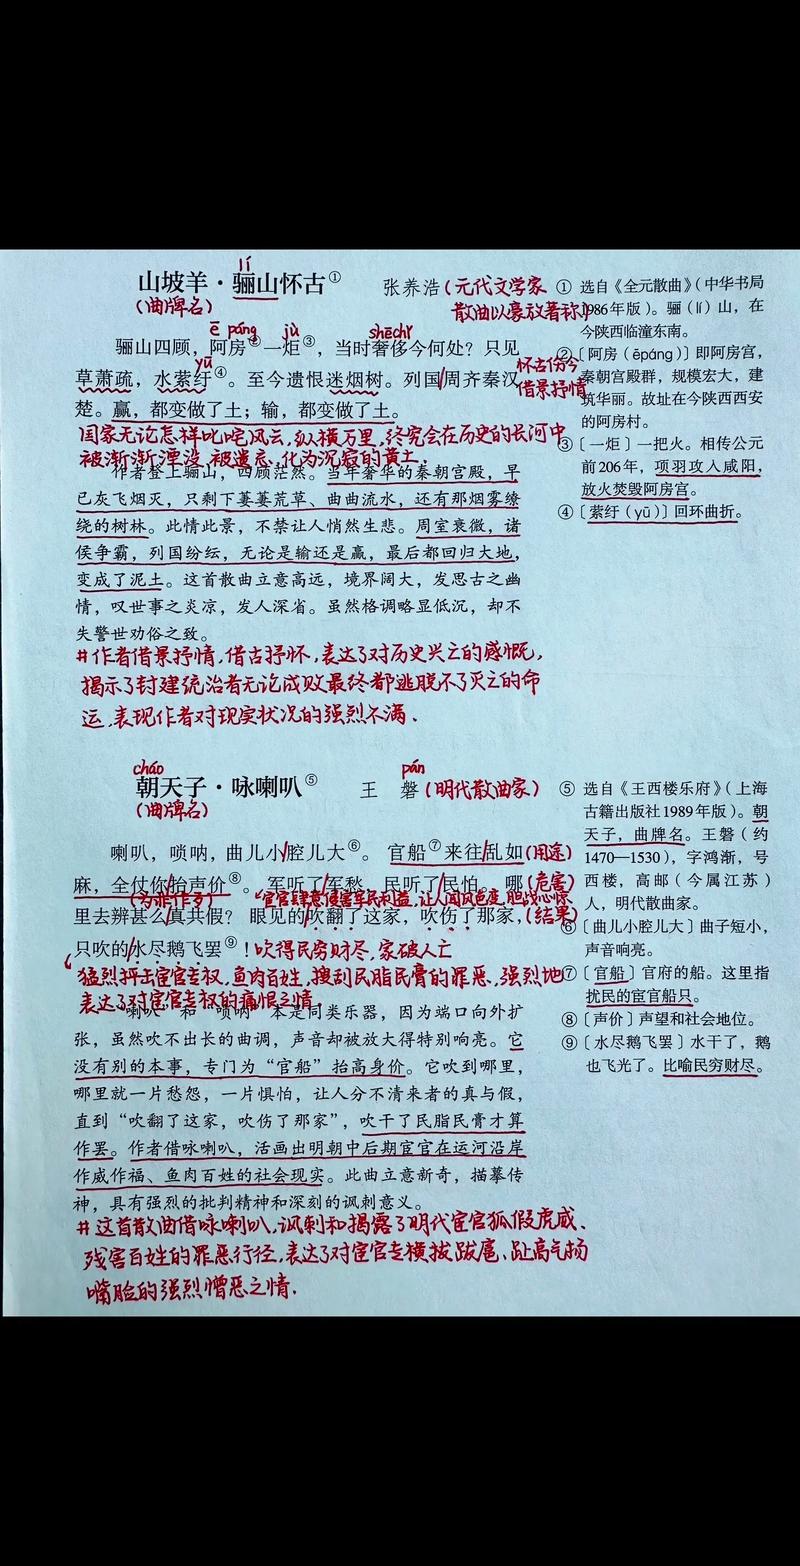 lí
山坡羊·骊山怀古① 张养浩(元代文学家
(曲牌名) 散曲以豪放著称)
ē páng jù shēchǐ
骊山四顾，阿房②一炬③，当时奢侈今何处？只见
yū 怀古伤今
草萧疏，水萦纡④。至今遗恨迷烟树。列国/周齐秦汉
借景抒情
楚。赢，都变做了土；输，都变做了土。
国家无论怎样叱咤风云,纵横万里,终究会在历史的长河中
被渐渐湮没,被遗忘,化为沉寂的黄土.
作者登上骊山，四顾茫然。当年奢华的秦朝宫殿，早
已灰飞烟灭，只剩下萋萋荒草、曲曲流水，还有那烟雾缭
绕的树林。此情此景，不禁让人悄然生悲。周室衰微，诸
侯争霸，列国纷纭，无论是输还是赢，最后都回归大地，
变成了泥土。这首散曲立意高远，境界阔大，发思古之幽
情，叹世事之炎凉，发人深省。虽然格调略显低沉，却不
失警世劝俗之致。
#作者借景抒情,借古抒怀,表达了对历史兴亡的感慨,
揭示了封建统治者无论成败最终都逃脱不了灭亡的命
运,表现作者对现实状况的强烈不满.
① 选自《全元散曲》（中华书局
1986年版）。骊（lí）山，在
今陕西临潼东南。
②〔阿房（ēpáng）〕即阿房宫，
秦朝宫殿群，规模宏大，建
筑华丽。故址在今陕西西安
的阿房村。
③〔一炬〕一把火。相传公元
前206年，项羽攻入咸阳，
放火焚毁阿房宫。
④〔萦纡（yū）〕回环曲折。
cháo pán
朝天子·咏喇叭⑤ 王 磐(明代散曲家)
(曲牌名)
喇叭，唢呐，曲儿小/腔儿大⑥。官船⑦来往/乱如(用途)
麻，全仗你/抬声价⑧。军听了/军愁，民听了/民怕。哪(危害)
(为非作歹) 宦官肆意侵害军民利益,让人闻风色变,胆战心惊.
里去辨甚么/真共假？眼见的/吹翻了这家，吹伤了那家，(结果)
只吹的/水尽鹅飞罢⑨！吹得民穷财尽,家破人亡
猛烈抨击宦官专权,鱼肉百姓,搜刮民脂民膏的罪恶,强烈地
表达了对宦官专权的痛恨之情.
“喇叭”和“唢呐”本是同类乐器，因为端口向外扩
张，虽然吹不出长的曲调，声音却被放大得特别响亮。它
没有别的本事，专门为“官船”抬高身价。它吹到哪里，
哪里就一片愁怨，一片惧怕，让人分不清来者的真与假，
直到“吹翻了这家，吹伤了那家”，吹干了民脂民膏才算
作罢。作者借咏喇叭，活画出明朝中后期宦官在运河沿岸
作威作福、鱼肉百姓的社会现实。此曲立意新奇，描摹传
神，具有强烈的批判精神和深刻的讽刺意义。
#这首散曲借咏喇叭,讽刺和揭露了明代宦官狐假虎威、
残害百姓的罪恶行径,表达了对宦官专横拔跋扈、趾高气扬
嘴脸的强烈憎恶之情.
⑤ 选自《王西楼乐府》（上海
古籍出版社1989年版）。朝
天子，曲牌名。王磐（约
1470—1530），字鸿渐，号
西楼，高邮（今属江苏）
人，明代散曲家。
⑥〔曲儿小腔儿大〕曲子短小，
声音响亮。
⑦〔官船〕官府的船。这里指
扰民的宦官船只。
⑧〔声价〕声望和社会地位。
⑨〔水尽鹅飞罢〕水干了，鹅
也飞光了。比喻民穷财尽。